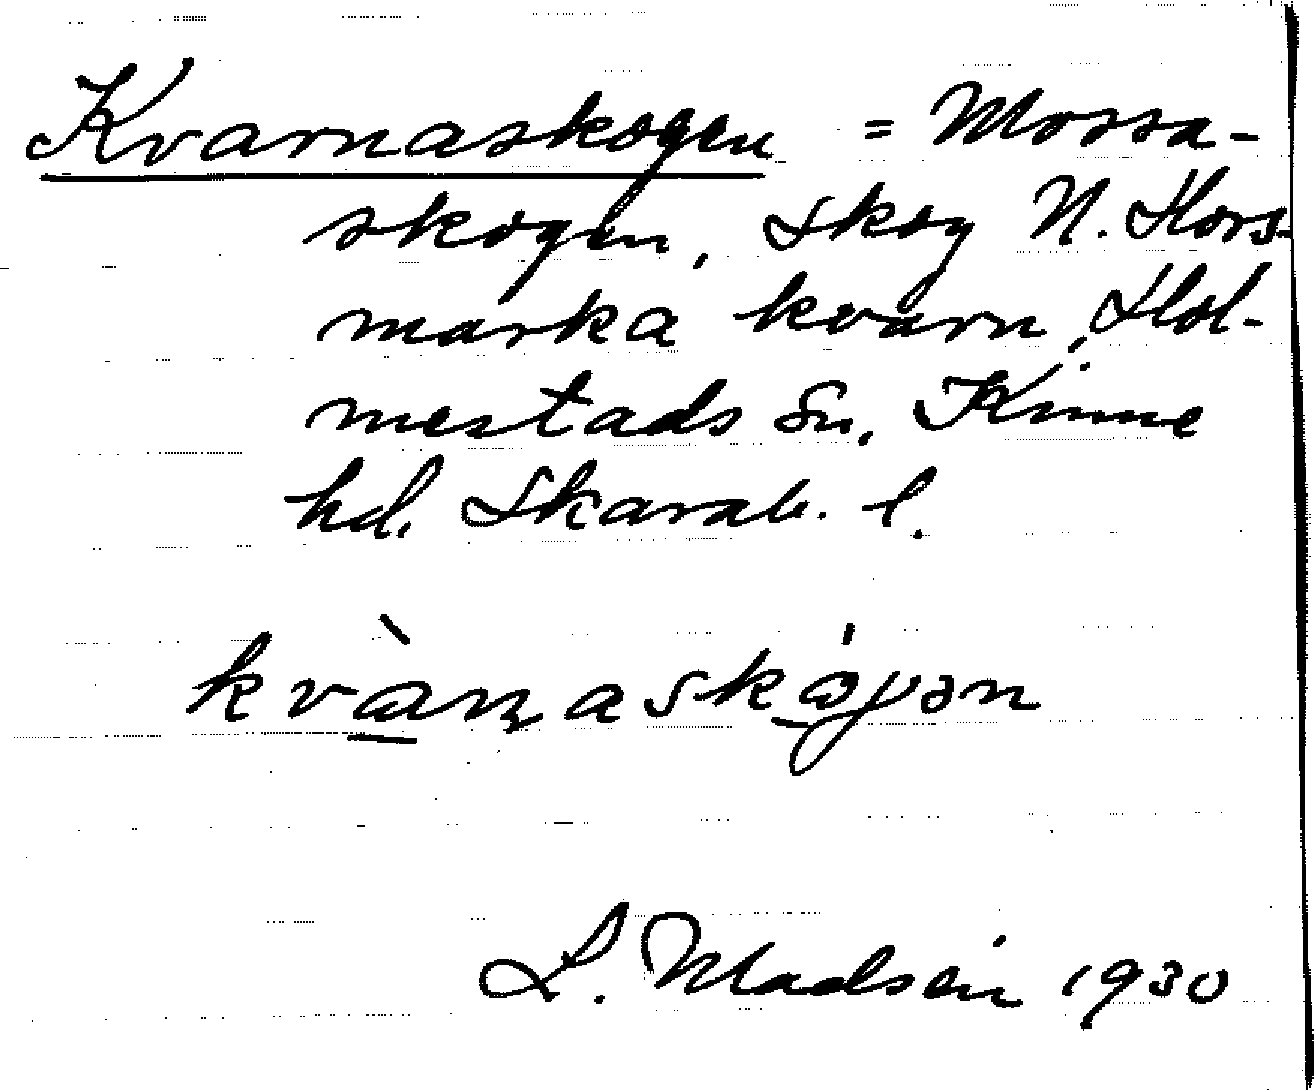 Kvarnaskogen = Mossa-
skogen, skog N. Hors-
marka kvarn, Hol-
mestads sn, Kinne
hd. Skarab. l.
L. Madsén 1930